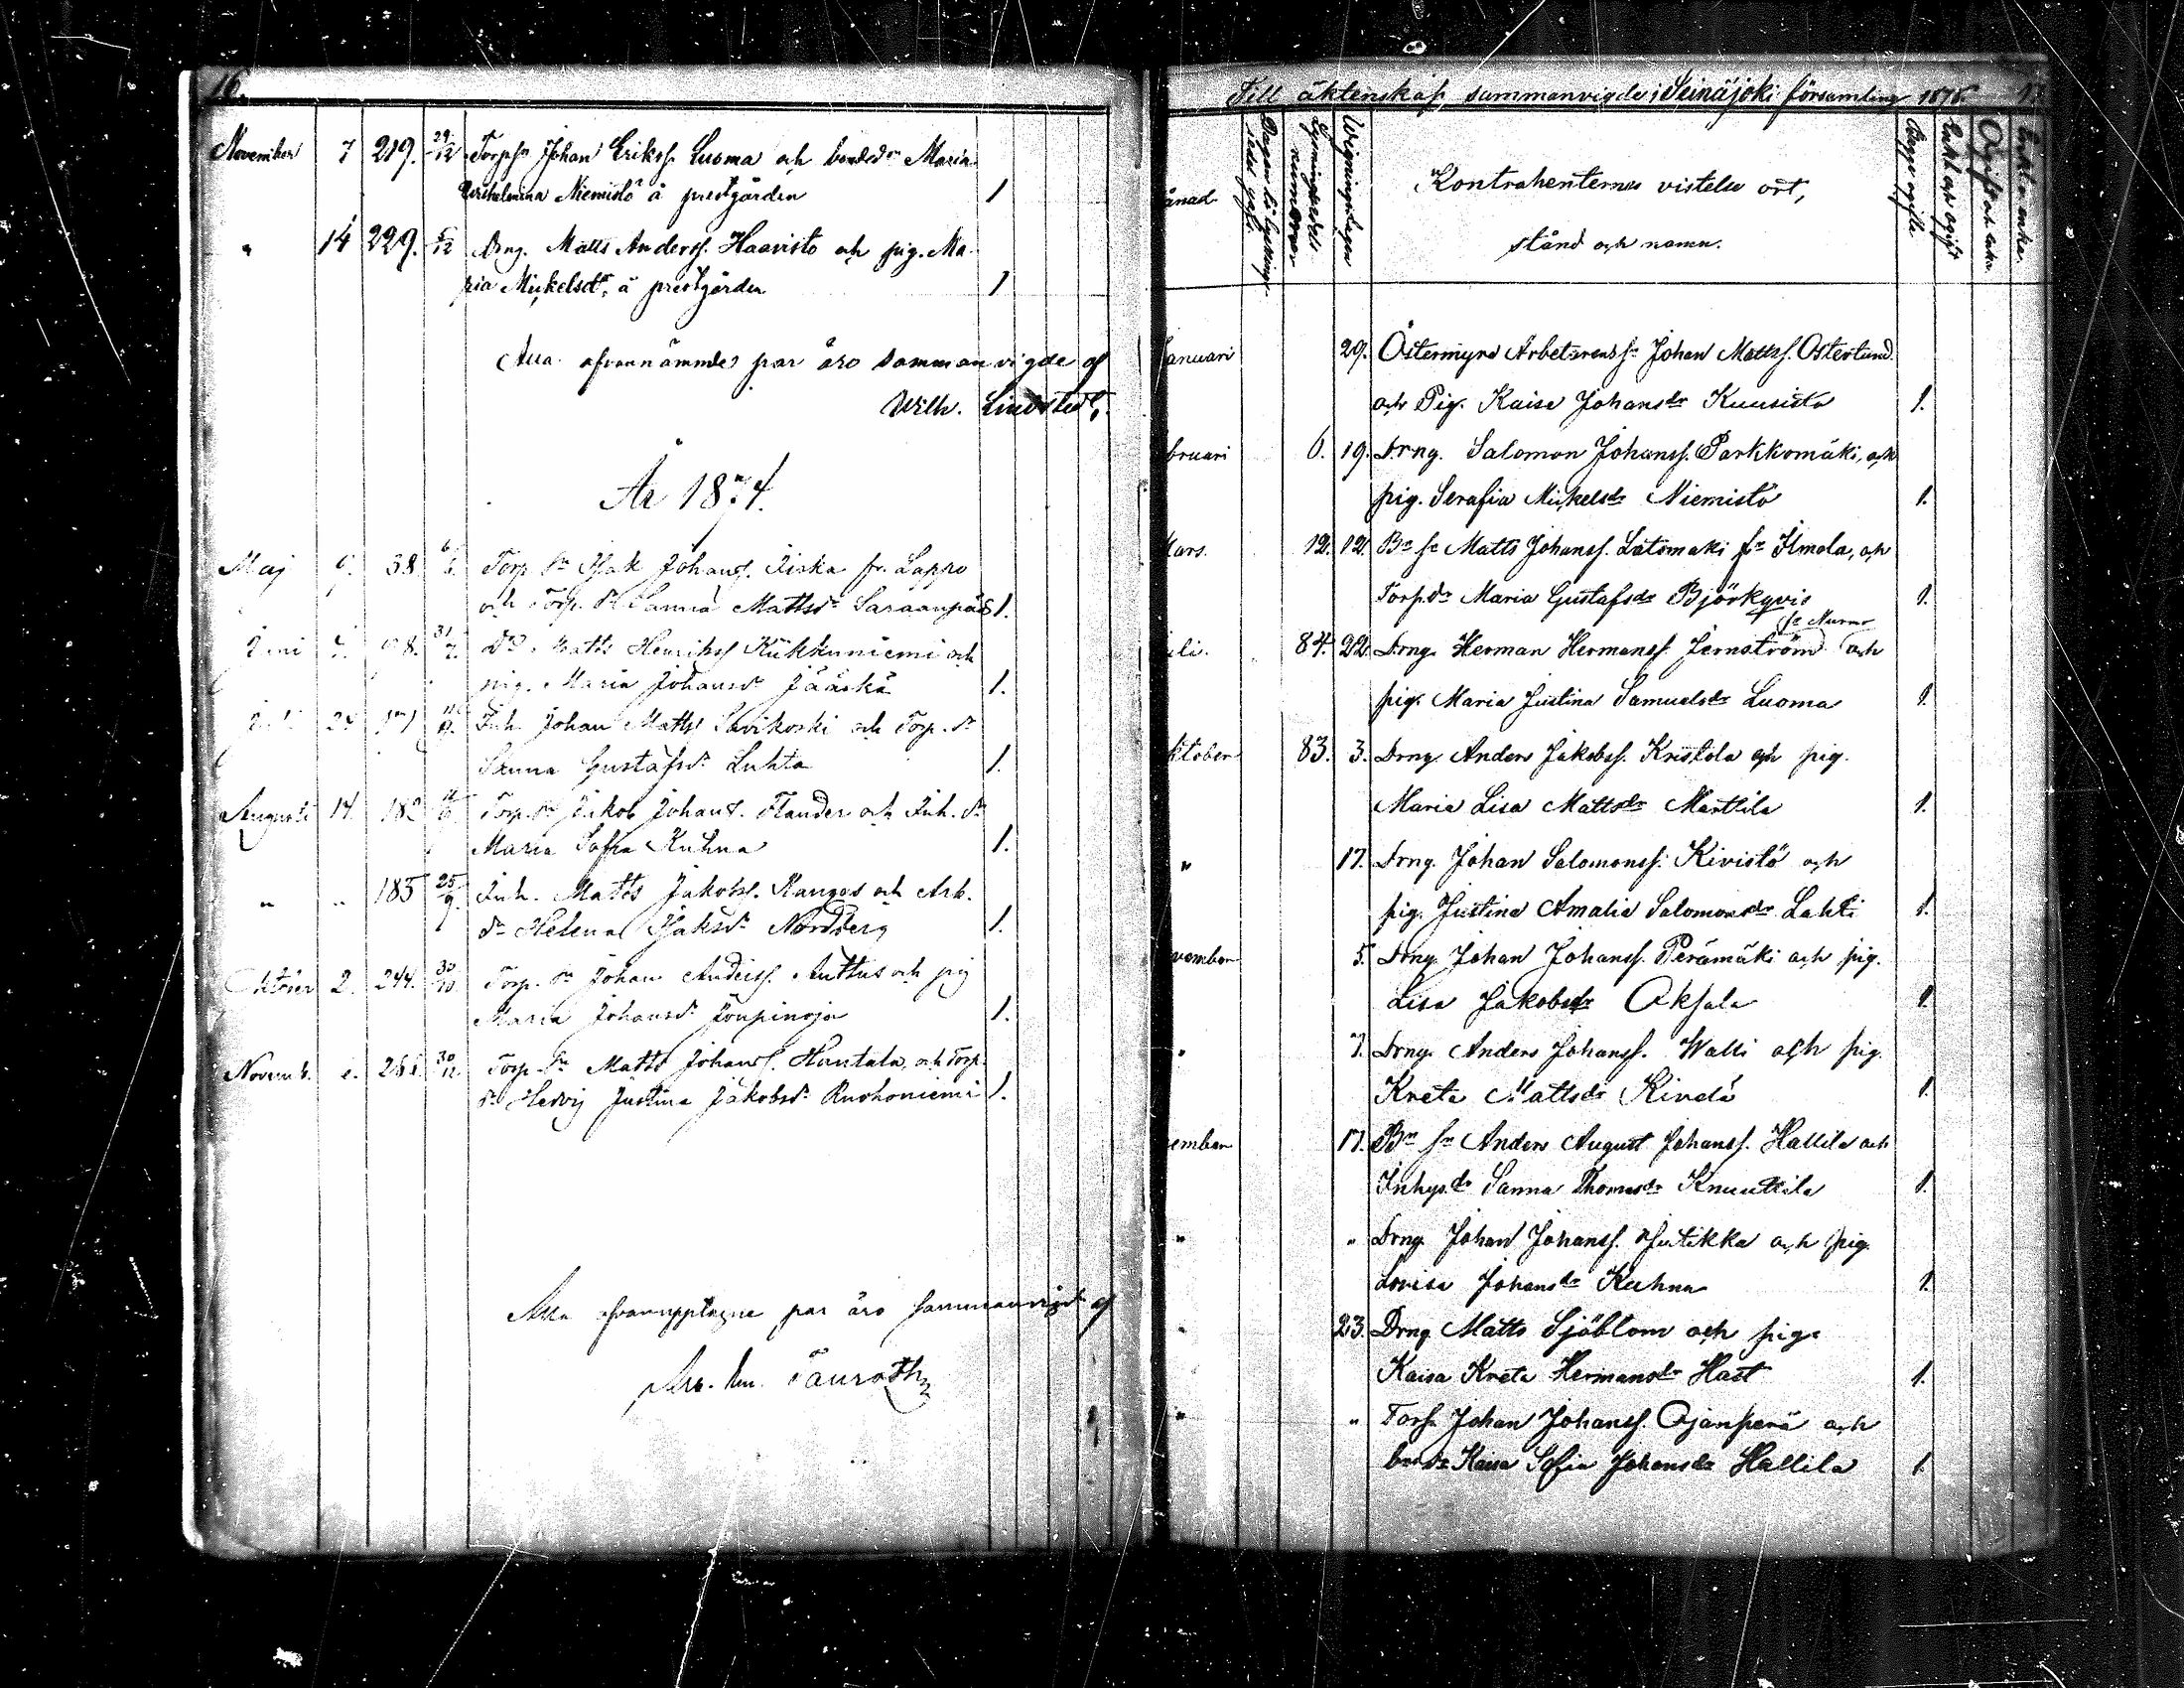 16.
November 7 219. 29/12 Torpsn Johan Erikss. Luoma och bonded. Maria
Wilhelmina Niemistö å prestgården 1
" 14 229. 5/12 Drng. Matts Anderss. Haavisto och pig. Ma-
ria Mickelsdr, å prestgården 1
Alla ofvannämnde par äro sammanvigde af
Wilh. Lindstedt,
År 1874.
Maj 9. 38. Torp. sn Isak Johanss. Liska fr. Lappo
och Torp. dr Sanna Mattsdr Saraanpää 1.
Juni 98. 31/7. Dr. Matts Henrikss Kükkuniemi och
pig. Maria Johansdr Jääskä 1.
24 Inh. Johan Mattss Savikoski och Torp. dr
Sanna Gustafsdr Luhta 1.
Augusti 14. 182 Torp. sn Jakob Johanss. Flander och Inh. dr
Maria Sofia Kuhna 1.
" " 185 25/9. Inh. Matts Jakobss. Kangas och Arb.
dr Helena Isaksdr Nordberg 1.
Oktober 2. 244. 30/10. Torp. sn Johan Anderss. Anttus och pig
Maria Johansdr Joupinoja 1.
Novemb. 30/12 Torp. sn Matts Johanss. Hantala, och Torp.
dr Hedvig Justina Jakobsdr Ruohoniemi 1.
Alla ofvanupptagne par äro sammanvigde af
Tauroth
Till äktenskap sammanvigde i Seinäjoki församling 1875. 17
ånad. Dagen då lysnings- sedel gafs. Lysningssedels nummer Wigningsdagen Kontrahenternes vistelse ort,
stånd och namn. Begge ogifte. Enkl. och ogift Ogift och enka. Enkl. o. enka.
Januari 29. Östermyra Arbetarens sn Johan Mattss. Österlund
och Pig. Kaisa Johansdr Kuusisto 1.
bruari 6. 19. Drng. Salomon Johanss. Parkkomäki, och
pig. Serafia Mickelsdr Niemistö 1.
Mars. 12. 12. Bn sn Matts Johanss. Latomäki fr Ilmola, och
Torp.dr Maria Gustafsdr Björkqvis 1.
fr Nurmo
uli. 84. 22. Drng. Herman Hermanss. Jernström och
pig. Maria Justina Samuelsdr Luoma 1.
ktober 83. 3. Drng. Anders Jakobss. Kristola och pig.
Maria Lisa Mattsdr Marttila 1.
" 17. Drng. Johan Salomonss. Kivistö och
pig. Justina Amalia Salomonsdr Lahti 1.
vember 5. Drng. Johan Johanss. Perämäki och pig.
Lisa Jakobsdr Aksala 1.
" 7. Drng. Anders Johanss. Walli och pig.
Kreta Mattsdr Kivelä 1.
ember 17. Bn sn Anders August Johanss. Hallila och
Inhys.dr Sanna Thomasdr Knuuttila 1.
" " Drng. Johan Johanss. Jutikka och pig.
Lovisa Johansdr Kuhna 1.
" 23. Drng Matts Sjöblom och pig.
Kaisa Kreta Hermansdr Hast 1.
" " Torp. Johan Johanss. Ojanperä och
bondr Kaisa Sofia Johansdr Hallila 1.